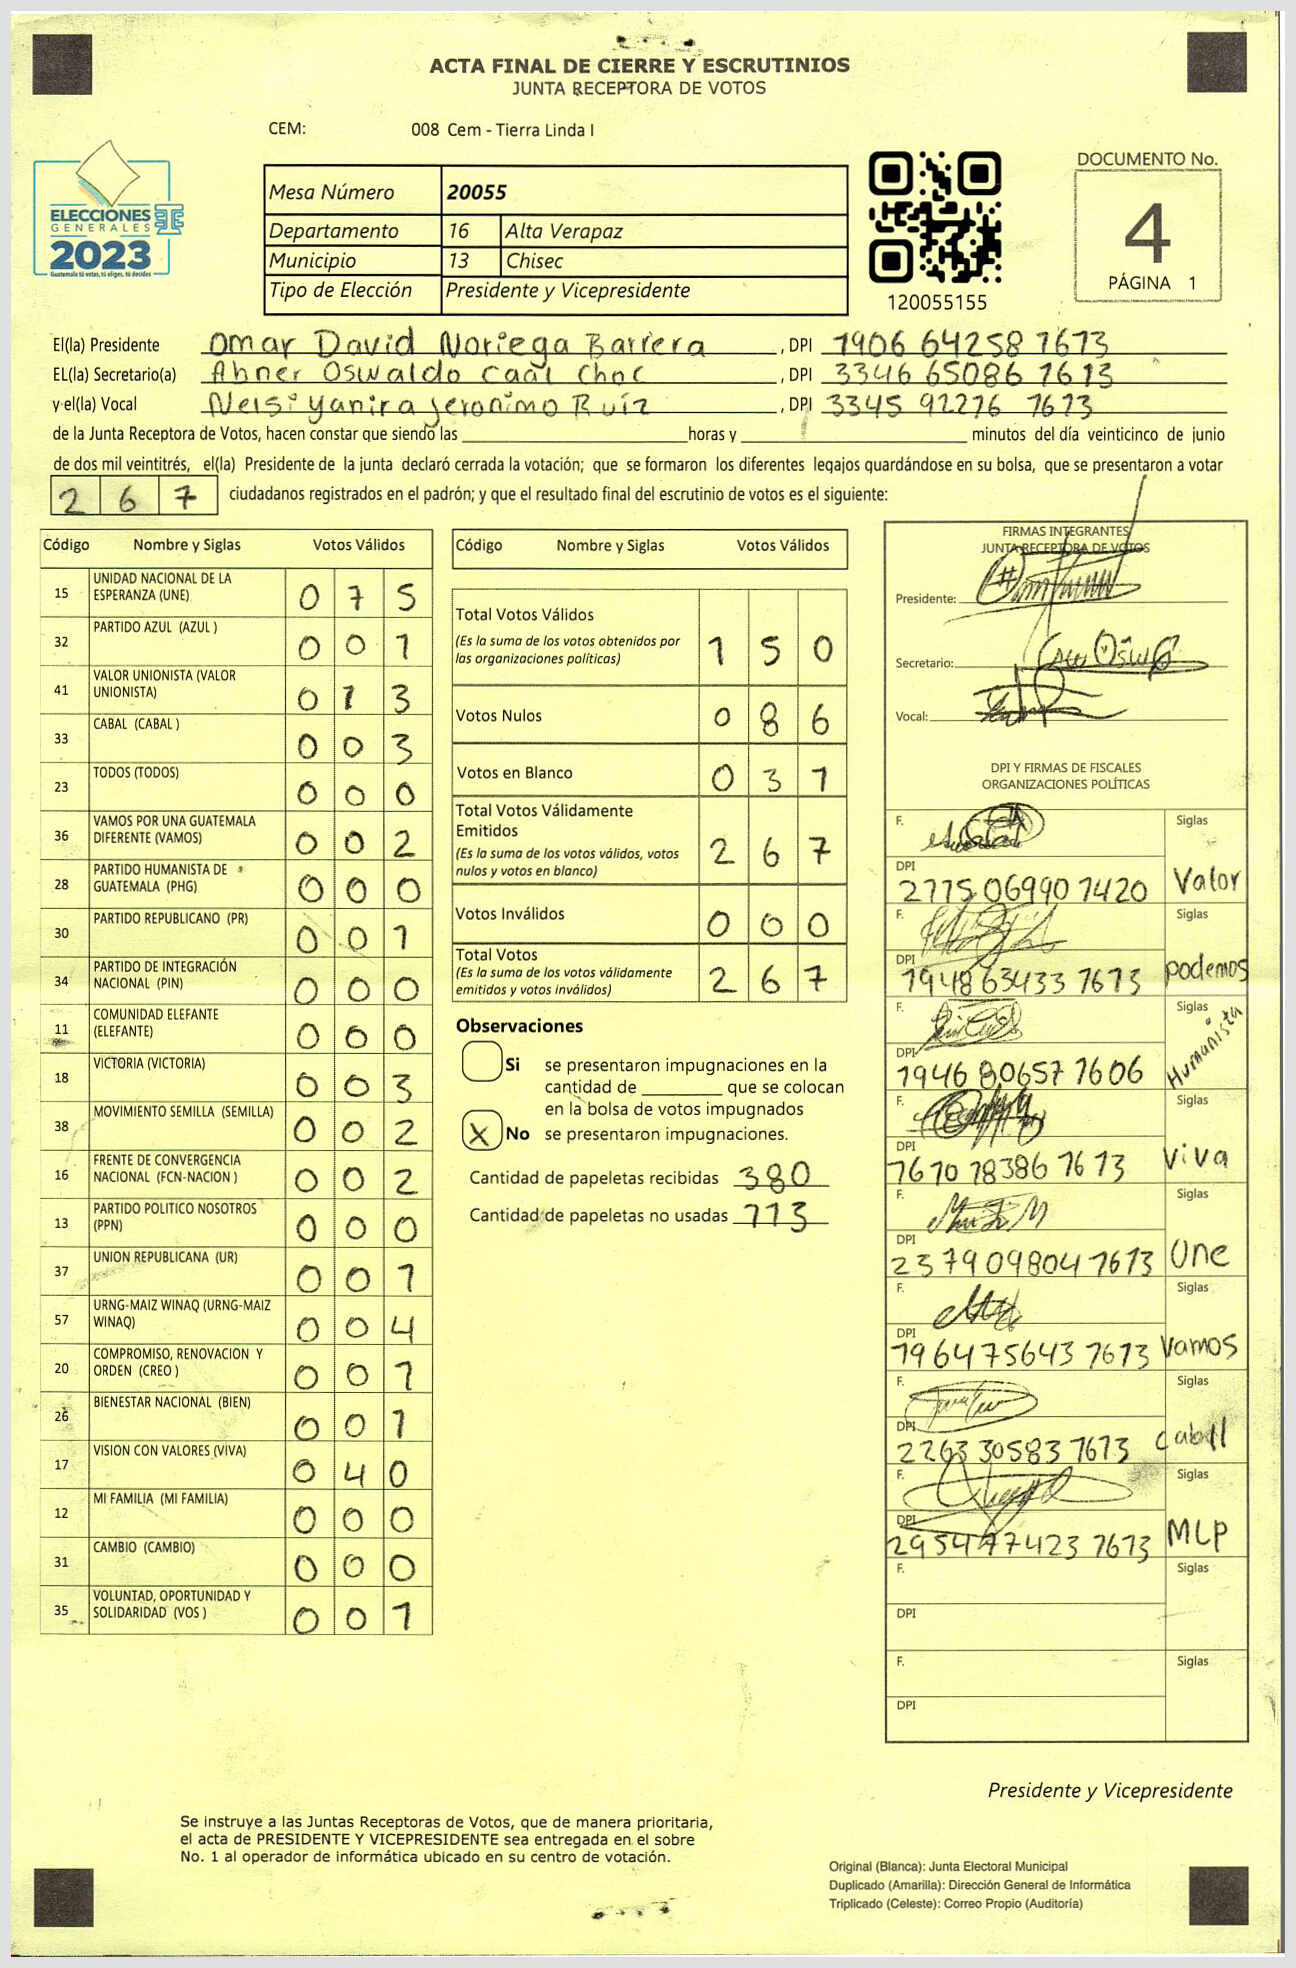 ACTA FINAL DE CIERRE Y ESCRUTINIOS
JUNTA RECEPTORA DE VOTOS
CEM: 008 Cem - Tierra Linda I
ELECCIONES
GENERALES
2023
Guatemala tú votas, tú eliges, tú decides
Mesa Número 20055
Departamento 16 Alta Verapaz
Municipio 13 Chisec
Tipo de Elección Presidente y Vicepresidente
120055155
DOCUMENTO No.
4
PÁGINA 1
El(la) Presidente Omar David Noriega Barrera , DPI 1906 64258 1613
EL(la) Secretario(a) Abner Oswaldo Caal Choc , DPI 3346 65086 1613
y el(la) Vocal Neisi Yanira Jeronimo Ruíz , DPI 3345 92276 1613
de la Junta Receptora de Votos, hacen constar que siendo las horas y minutos del día veinticinco de junio
de dos mil veintitrés, el(la) Presidente de la junta declaró cerrada la votación; que se formaron los diferentes legajos guardándose en su bolsa, que se presentaron a votar
267 ciudadanos registrados en el padrón; y que el resultado final del escrutinio de votos es el siguiente:
Código Nombre y Siglas Votos Válidos
15 UNIDAD NACIONAL DE LA ESPERANZA (UNE) 075
32 PARTIDO AZUL (AZUL ) 001
41 VALOR UNIONISTA (VALOR UNIONISTA) 013
33 CABAL (CABAL ) 003
23 TODOS (TODOS) 000
36 VAMOS POR UNA GUATEMALA DIFERENTE (VAMOS) 002
28 PARTIDO HUMANISTA DE GUATEMALA (PHG) 000
30 PARTIDO REPUBLICANO (PR) 001
34 PARTIDO DE INTEGRACIÓN NACIONAL (PIN) 000
11 COMUNIDAD ELEFANTE (ELEFANTE) 000
18 VICTORIA (VICTORIA) 003
38 MOVIMIENTO SEMILLA (SEMILLA) 002
16 FRENTE DE CONVERGENCIA NACIONAL (FCN-NACION ) 002
13 PARTIDO POLITICO NOSOTROS (PPN) 000
37 UNION REPUBLICANA (UR) 001
57 URNG-MAIZ WINAQ (URNG-MAIZ WINAQ) 004
20 COMPROMISO, RENOVACION Y ORDEN (CREO ) 001
26 BIENESTAR NACIONAL (BIEN) 001
17 VISION CON VALORES (VIVA) 040
12 MI FAMILIA (MI FAMILIA) 000
31 CAMBIO (CAMBIO) 000
35 VOLUNTAD, OPORTUNIDAD Y SOLIDARIDAD (VOS ) 001
Código Nombre y Siglas Votos Válidos
Total Votos Válidos 150
(Es la suma de los votos obtenidos por las organizaciones políticas)
Votos Nulos 086
Votos en Blanco 031
Total Votos Válidamente Emitidos 267
(Es la suma de los votos válidos, votos nulos y votos en blanco)
Votos Inválidos 000
Total Votos 267
(Es la suma de los votos válidamente emitidos y votos inválidos)
Observaciones
Si se presentaron impugnaciones en la
cantidad de que se colocan
en la bolsa de votos impugnados
X No se presentaron impugnaciones.
Cantidad de papeletas recibidas 380
Cantidad de papeletas no usadas 113
FIRMAS INTEGRANTES
JUNTA RECEPTORA DE VOTOS
Presidente:
Secretario:
Vocal:
DPI Y FIRMAS DE FISCALES
ORGANIZACIONES POLÍTICAS
F. Siglas
DPI 2775 06990 1420 Valor
F. Siglas
DPI 1948 63433 1613 podemos
F. Siglas
DPI 1946 80657 1606 Humanista
F. Siglas
DPI 1610 18386 1613 Viva
F. Siglas
DPI 2379 09804 1613 Une
F. Siglas
DPI 1964 75643 1613 Vamos
F. Siglas
DPI 2263 30583 1613 caball
F. Siglas
DPI 2954 77423 1613 MLP
F. Siglas
DPI
F. Siglas
DPI
Presidente y Vicepresidente
Se instruye a las Juntas Receptoras de Votos, que de manera prioritaria,
el acta de PRESIDENTE Y VICEPRESIDENTE sea entregada en el sobre
No. 1 al operador de informática ubicado en su centro de votación.
Original (Blanca): Junta Electoral Municipal
Duplicado (Amarilla): Dirección General de Informática
Triplicado (Celeste): Correo Propio (Auditoría)